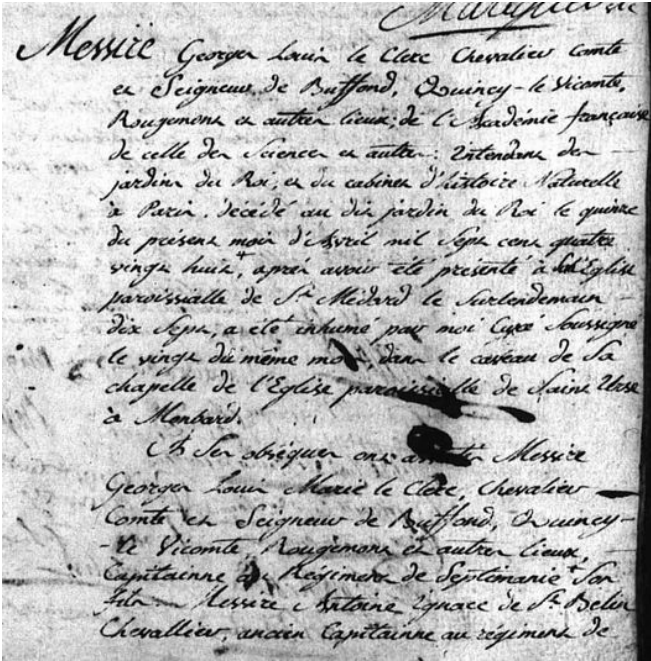 Messire Georges Louis le Clerc Chevalier Comte
et Seigneur de Buffond, Quincy-le Vicomte,
Rougemont et autres lieux, de l'Académie française
de celle des Sciences et autres; Intendant des
jardins du Roi, et du cabinet d'histoire Naturelle
à Paris, décédé au dit jardin du Roi le quinze
du présent mois d'Avril mil Sept cent quatre
vingt huit,+ après avoir été présenté à l'Eglise
paroissialle de St Médard le Surlendemain
dix Sept, a été inhumé par moi Curé Soussigné
le vingt du même mois, dans le caveau de Sa
chapelle de l'Eglise paroissialle de Saint Urse
à Montbard.
A Ses obséques ont assistés Messire
Georges Louis Marie le Clerc, Chevalier
Comte et Seigneur de Buffond, Quincy-
-le Vicomte, Rougemont et autres lieux,
Capitainne au Régiment de Septimanie + Son
fils Messire Antoine Ignace de St Belin
Chevallier, ancien Capitainne au régiment de